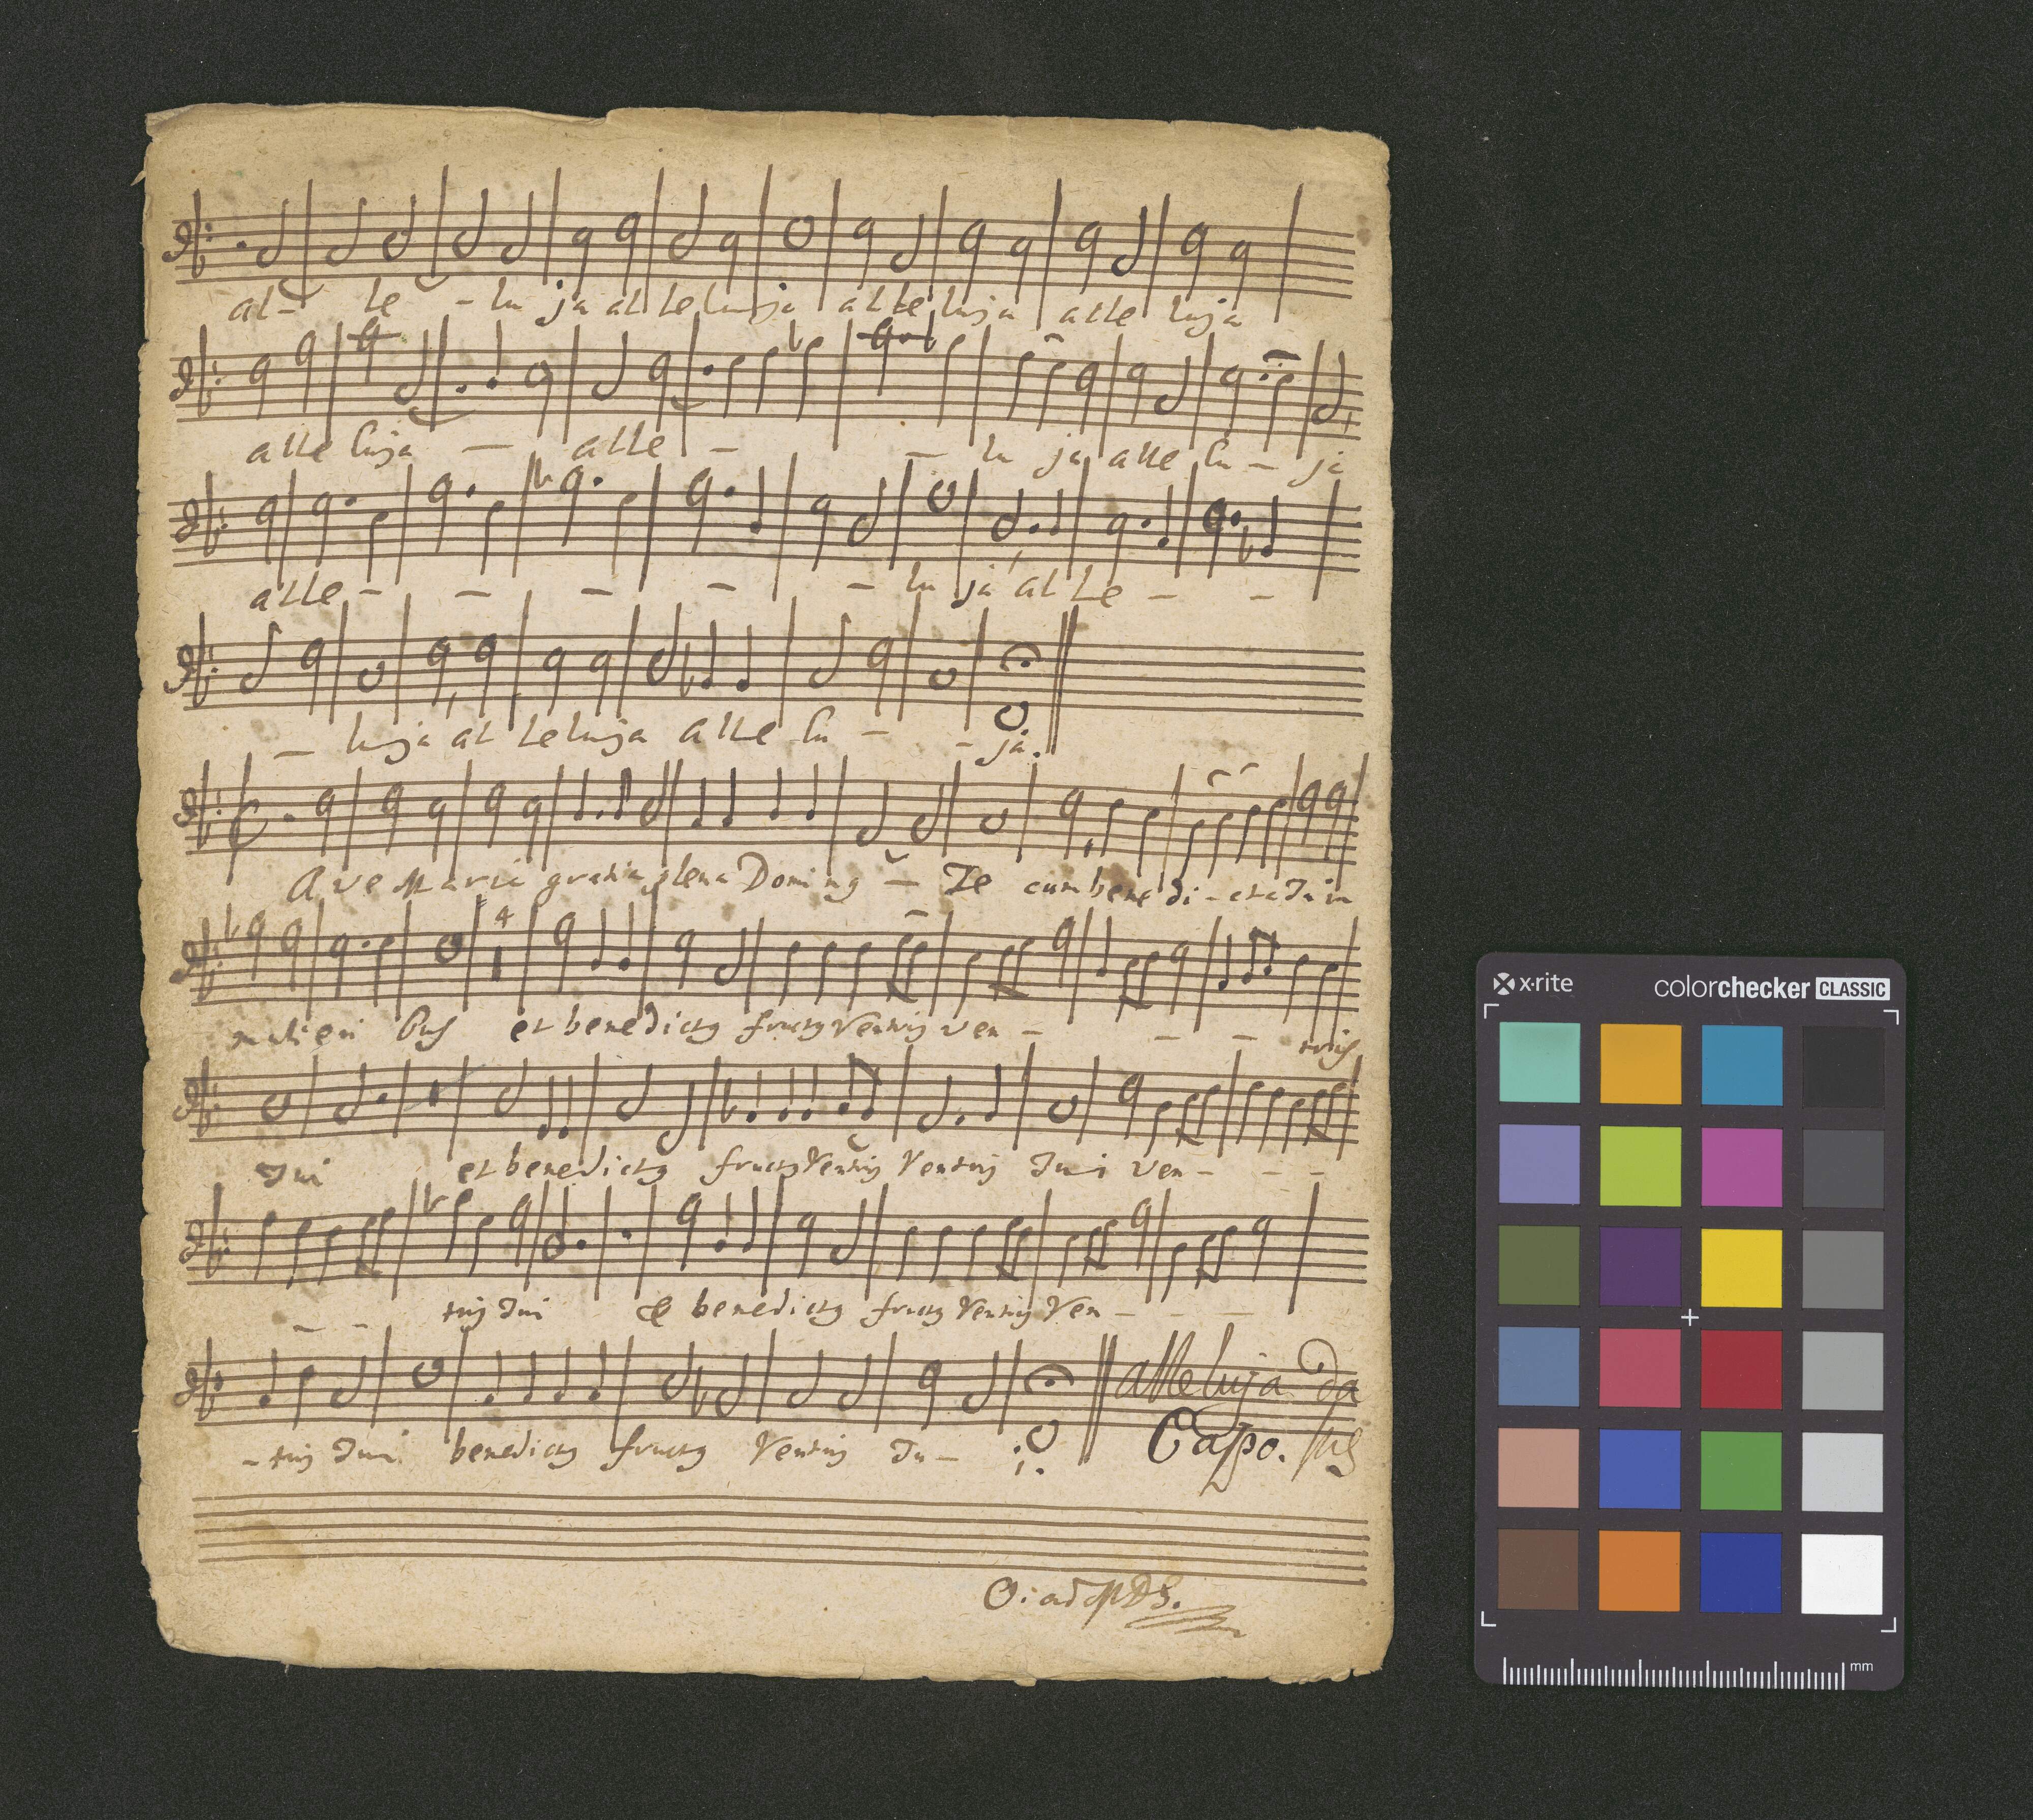 al- le - lu ja al le luja alle luja alle luja
alle luja — alle - — lu ja alle lu - ja
alle - - - - - lu ja al le - -
- luja al leluja alle lu - - ja.
4
Ave Maria gratia plena Doming — Te cum bene di - cta Tu in
mulieri bus et benedictg fructg Ventris ven - - - tris
Tui et benedictg fructg Ventris Ventris Tui ven - - -
- - tris Tui & benedictg fructg Ventris Ven - - -
alleluja Da
- tris Tui benedictg fructg Ventris Tu - i.
Capo.
O: ad MDG.
x·rite colorchecker CLASSIC
mm